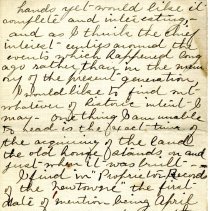 hands yet would like it
complete and interesting,
and as I think the chief
interest centres around the
events which happened long
ago rather than in the mem-
ory of the present generation
I would like to find out
whatever of historic interest I
may - one thing I am unable
to head is the exact time of
the acquiring of the land
the old house stands on and
just when it was built -
I find in "Proprietor Records
of the Newtowne" the first
date of mention being April